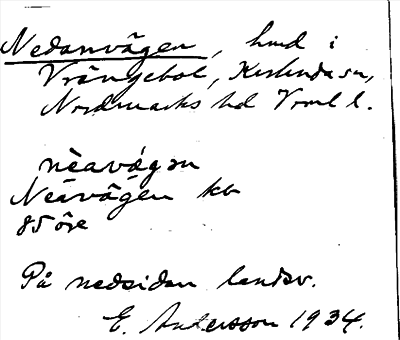 Nedanvägen, hmd i
Vrångebol, Karlanda sn,
Nordmarks hd Vrml l.
nèavá̀gən
Neavägen kb
85 öre
På nedsidan landsv.
E. Andersson 1934.